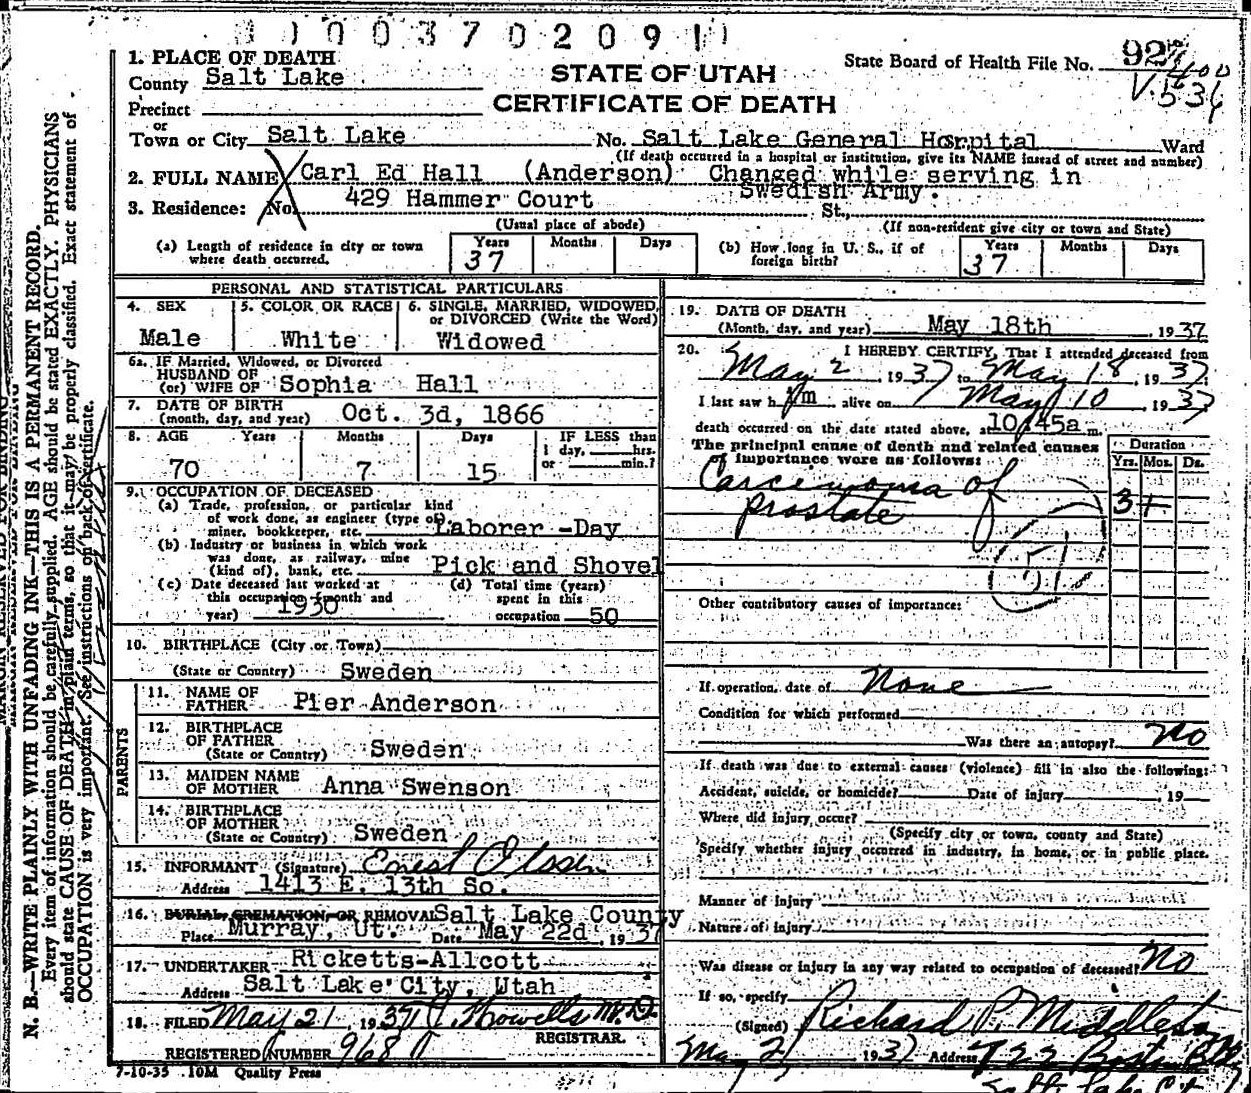 0003702091
1. PLACE OF DEATH
County Salt Lake
Precinct
or
Town or City Salt Lake No. Salt Lake General Hospital Ward
(If death occurred in a hospital or institution, give its NAME insead of street and number)
STATE OF UTAH
CERTIFICATE OF DEATH
State Board of Health File No. 927
2. FULL NAME Carl Ed Hall (Anderson) Changed while serving in
Swedish Army.
3. Residence: No. 429 Hammer Court St.,
(Usual place of abode) (If non-resident give city or town and State)
(a) Length of residence in city or town where death occurred. Years 37 Months Days
(b) How long in U. S., if of foreign birth? Years 37 Months Days
PERSONAL AND STATISTICAL PARTICULARS
4. SEX Male
5. COLOR OR RACE White
6. SINGLE, MARRIED, WIDOWED, or DIVORCED (Write the Word) Widowed
6a. IF Married, Widowed, or Divorced
HUSBAND OF
(or) WIFE OF Sophia Hall
7. DATE OF BIRTH
(month, day, and year) Oct. 3d, 1866
8. AGE Years 70 Months 7 Days 15 IF LESS than 1 day, hrs. or min.?
9. OCCUPATION OF DECEASED
(a) Trade, profession, or particular kind
of work done, as engineer (type of)
miner, bookkeeper, etc. Laborer -Day
(b) Industry or business in which work
was done, as railway, mine
(kind of), bank, etc. Pick and Shovel
(c) Date deceased last worked at
this occupation (month and
year) 1930
(d) Total time (years)
spent in this
occupation 50
10. BIRTHPLACE (City or Town)
(State or Country) Sweden
PARENTS
11. NAME OF
FATHER Pier Anderson
12. BIRTHPLACE
OF FATHER
(State or Country) Sweden
13. MAIDEN NAME
OF MOTHER Anna Swenson
14. BIRTHPLACE
OF MOTHER
(State or Country) Sweden
15. INFORMANT (Signature) Ernest Olsen
Address 1413 E. 13th So.
16. BURIAL, CREMATION, OR REMOVAL Salt Lake County
Place Murray, Ut. Date May 22d, 1937
17. UNDERTAKER Ricketts-Allcott
Address Salt Lake City, Utah
18. FILED May 21, 1937 Howells M.D.
REGISTRAR.
REGISTERED NUMBER 968
7-10-35 10M Quality Press
19. DATE OF DEATH
(Month, day, and year) May 18th 1937
20. I HEREBY CERTIFY, That I attended deceased from
May 2, 1937 to May 18, 1937
I last saw him alive on May 10 1937
death occurred on the date stated above, at 10/45a m.
The principal cause of death and related causes
of importance were as follows:
Duration
Yrs. Mos. Ds.
Carcinoma of
prostate 3+
51
Other contributory causes of importance:
If operation, date of None
Condition for which performed
Was there an autopsy? No
If death was due to external causes (violence) fill in also the following:
Accident, suicide, or homicide? Date of injury , 19
Where did injury occur?
(Specify city or town, county and State)
Specify whether injury occurred in industry, in home, or in public place.
Manner of injury
Nature of injury
Was disease or injury in any way related to occupation of deceased? No
If so, specify
(Signed) Richard P. Middleton
May 21 1937 Address 722 Boston B
Salt Lake City
N. B.—WRITE PLAINLY WITH UNFADING INK—THIS IS A PERMANENT RECORD.
Every item of information should be carefully supplied. AGE should be stated EXACTLY. PHYSICIANS
should state CAUSE OF DEATH in plain terms, so that it may be properly classified. Exact statement of
OCCUPATION is very important. See instructions on back of certificate.
MARGIN RESERVED FOR BINDING